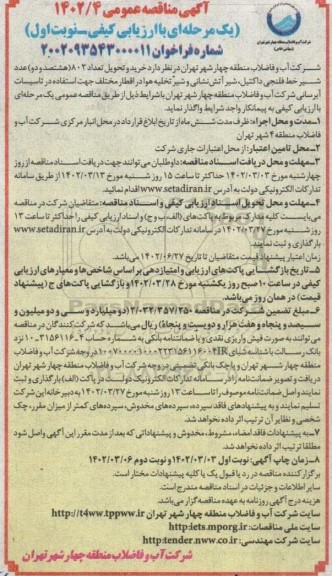 آگهی مناقصه عمومی ۱۴۰۲/۴
(یک مرحله ای با ارزیابی کیفی_نوبت اول)
شماره فراخوان ۲۰۰۲۰۹۳۵۴۳۰۰۰۰۱۱
شرکت آب و فاضلاب منطقه چهار شهر تهران در نظر دارد خرید و تحویل تعداد ۸۰۲ (هشتصد و دو) عدد
شیر خط فلنجی داکتیل، شیر آتش نشانی و شیر تخلیه هوا در اقطار مختلف جهت استفاده در تاسیسات
آبرسانی شرکت آب و فاضلاب منطقه چهار شهر تهران با شرایط ذیل از طریق مناقصه عمومی یک مرحله ای
با ارزیابی کیفی به پیمانکار واجد شرایط واگذار نماید.
۱_مدت و محل اجرا: ظرف مدت شش ماه از تاریخ ابلاغ قرارداد در محل انبار مرکزی شرکت آب و
فاضلاب منطقه ۴ شهر تهران
۲_محل تامین اعتبار: از محل اعتبارات جاری شرکت
۳_مهلت و محل دریافت اسناد مناقصه: داوطلبان می توانند جهت دریافت اسناد مناقصه از روز
چهارشنبه مورخ ۱۴۰۲/۰۳/۰۳ حداکثر تا ساعت ۱۵ روز شنبه مورخ ۱۴۰۲/۰۳/۱۳ از طریق سامانه
تدارکات الکترونیکی دولت به آدرس www.setadiran.ir اقدام نمایند.
۴_مهلت و محل تحویل اسناد ارزیابی کیفی و اسناد مناقصه: متقاضیان شرکت در مناقصه
می بایست کلیه مدارک مربوط به پاکت های (الف، ب و ج) و اسناد ارزیابی کیفی را حداکثر تا ساعت ۱۳
روز شنبه مورخ ۱۴۰۲/۰۳/۲۷ در سامانه تدارکات الکترونیکی دولت به آدرس www.setadiran.ir
بارگذاری و ثبت نمایند.
زمان اعتبار پیشنهاد قیمت متقاضیان تا تاریخ ۱۴۰۲/۰۶/۲۷ می باشد.
۵_تاریخ بازگشایی پاکت های ارزیابی و امتیازدهی بر اساس شاخص ها و معیارهای ارزیابی
کیفی در ساعت ۱۰ صبح روز یکشنبه مورخ ۱۴۰۲/۰۳/۲۸ و بازگشایی پاکت های ج (پیشنهاد
قیمت) در همان روز می باشد.
۶_مبلغ تضمین شرکت در مناقصه ۲/۰۳۲/۳۵۷/۲۵۰ (دو میلیارد و سی و دو میلیون و
سیصد و پنجاه و هفت هزار و دویست و پنجاه) ریال می باشد که شرکت کنندگان در مناقصه
می توانند به صورت فیش واریزی نقدی و یا ضمانتنامه بانکی به شماره حساب
بانک رسالت با شناسه شبای در وجه شرکت آب و فاضلاب
منطقه چهار شهر تهران و یا چک بانکی تضمینی در وجه شرکت آب و فاضلاب منطقه چهار شهر تهران
دریافت و تصویر ضمانتنامه را در سامانه تدارکات الکترونیک دولت در پاکت (الف) بارگذاری و ثبت
نمایند و اصل ضمانتنامه موصوف را تا ساعت ۱۳ روز شنبه مورخ ۱۴۰۲/۰۳/۲۷ به دبیرخانه این شرکت
تسلیم نمایند و به پیشنهادهای فاقد سپرده، سپرده های مخدوش، سپرده های کمتر از میزان مقرر، چک
شخصی و نظایر آن ترتیب اثر داده نخواهد شد.
۷_به پیشنهادات فاقد امضاء، مشروط، مخدوش و پیشنهاداتی که بعد از مدت مقرر این آگهی واصل شود
مطلقا ترتیب اثر داده نخواهد شد.
۸_زمان چاپ آگهی: نوبت اول ۱۴۰۲/۰۳/۰۳ و نوبت دوم ۱۴۰۲/۰۳/۰۶
برگزار کننده مناقصه در رد یا قبول یک یا کلیه پیشنهادات مختار است.
سایر اطلاعات و جزئیات در اسناد مناقصه مندرج است.
هزینه درج آگهی روزنامه به عهده مناقصه گزار می باشد.
سایت شرکت آب و فاضلاب منطقه چهار شهر تهران http://t4ww.tppww.ir
سایت ملی مناقصات: http:iets.mporg.ir
سایت شرکت مهندسی: http:tender.nww.co.ir
شرکت آب و فاضلاب منطقه چهار شهر تهران